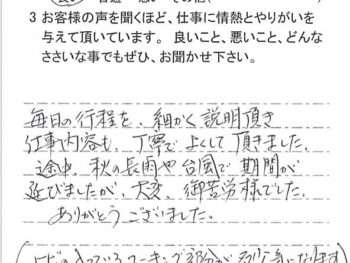 3 お客様の声を聞くほど、仕事に情熱とやりがいを
与えて頂いています。 良いこと、悪いこと、どんな
ささいな事でもぜひ、お聞かせ下さい。
毎日の行程を、細かく説明頂き
仕事内容も、丁寧でよくして頂きました。
途中、秋の長雨や台風で期間が
延びましたが、大変、御苦労様でした。
ありがとうございました。